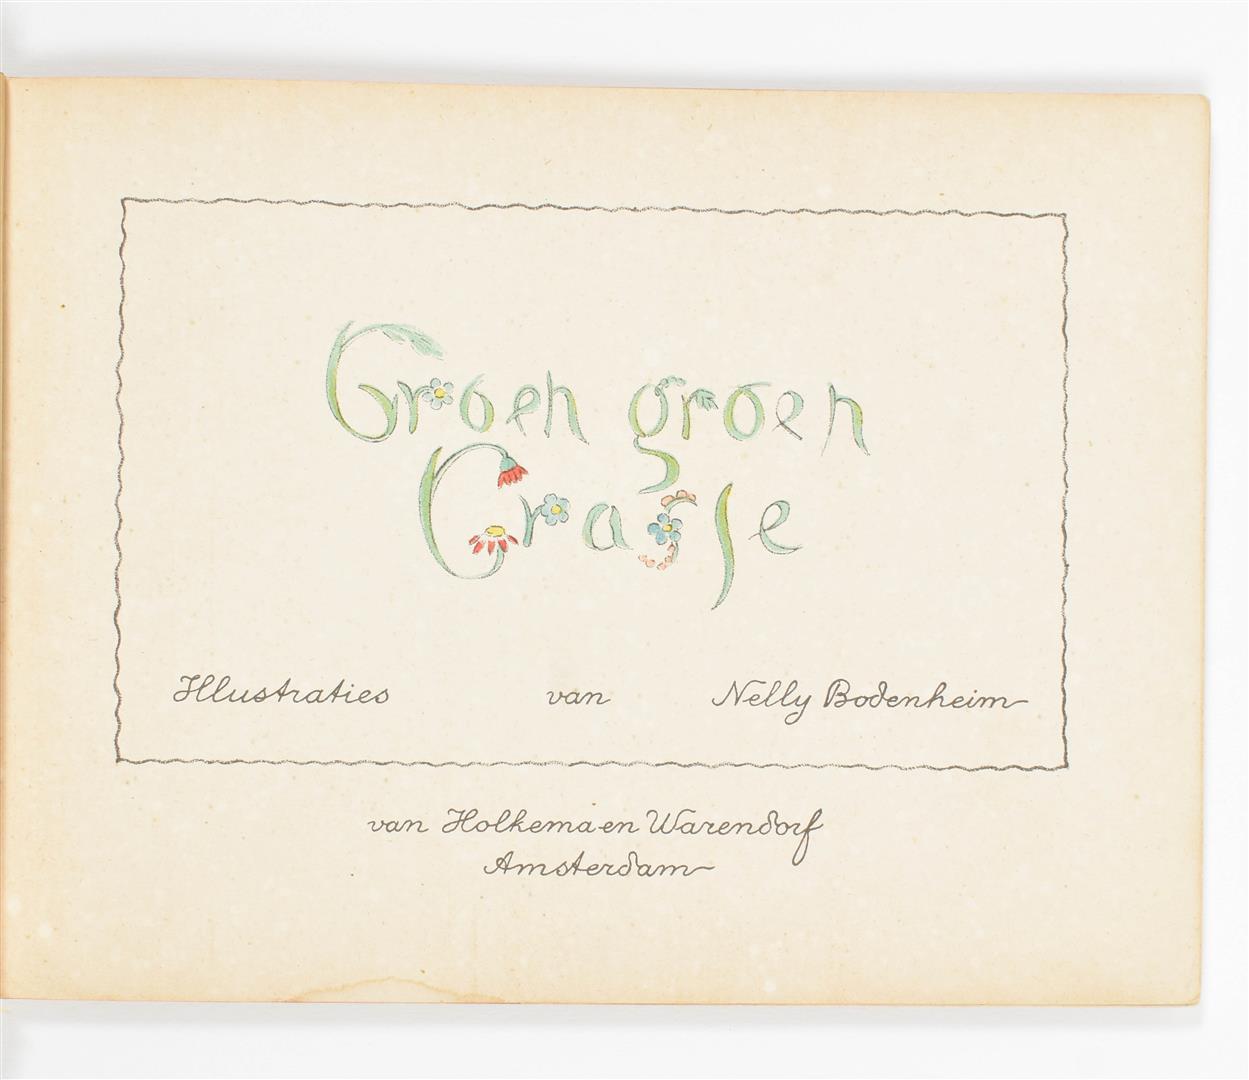 Groen groen
Grasje
Illustraties van Nelly Bodenheim
van Holkema en Warendorf
Amsterdam